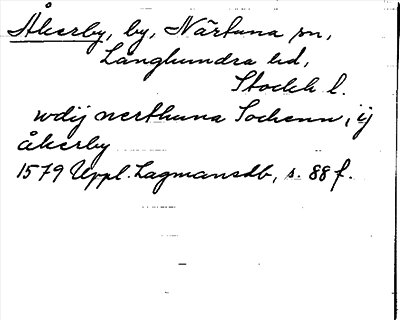 Åkerby, by, Närtuna sn,
Långhundra hd,
Stockh. l.
wdij nerthuna Sochenn, ij
åkerby
1579 Uppl. Lagmansdb, s. 88 f.